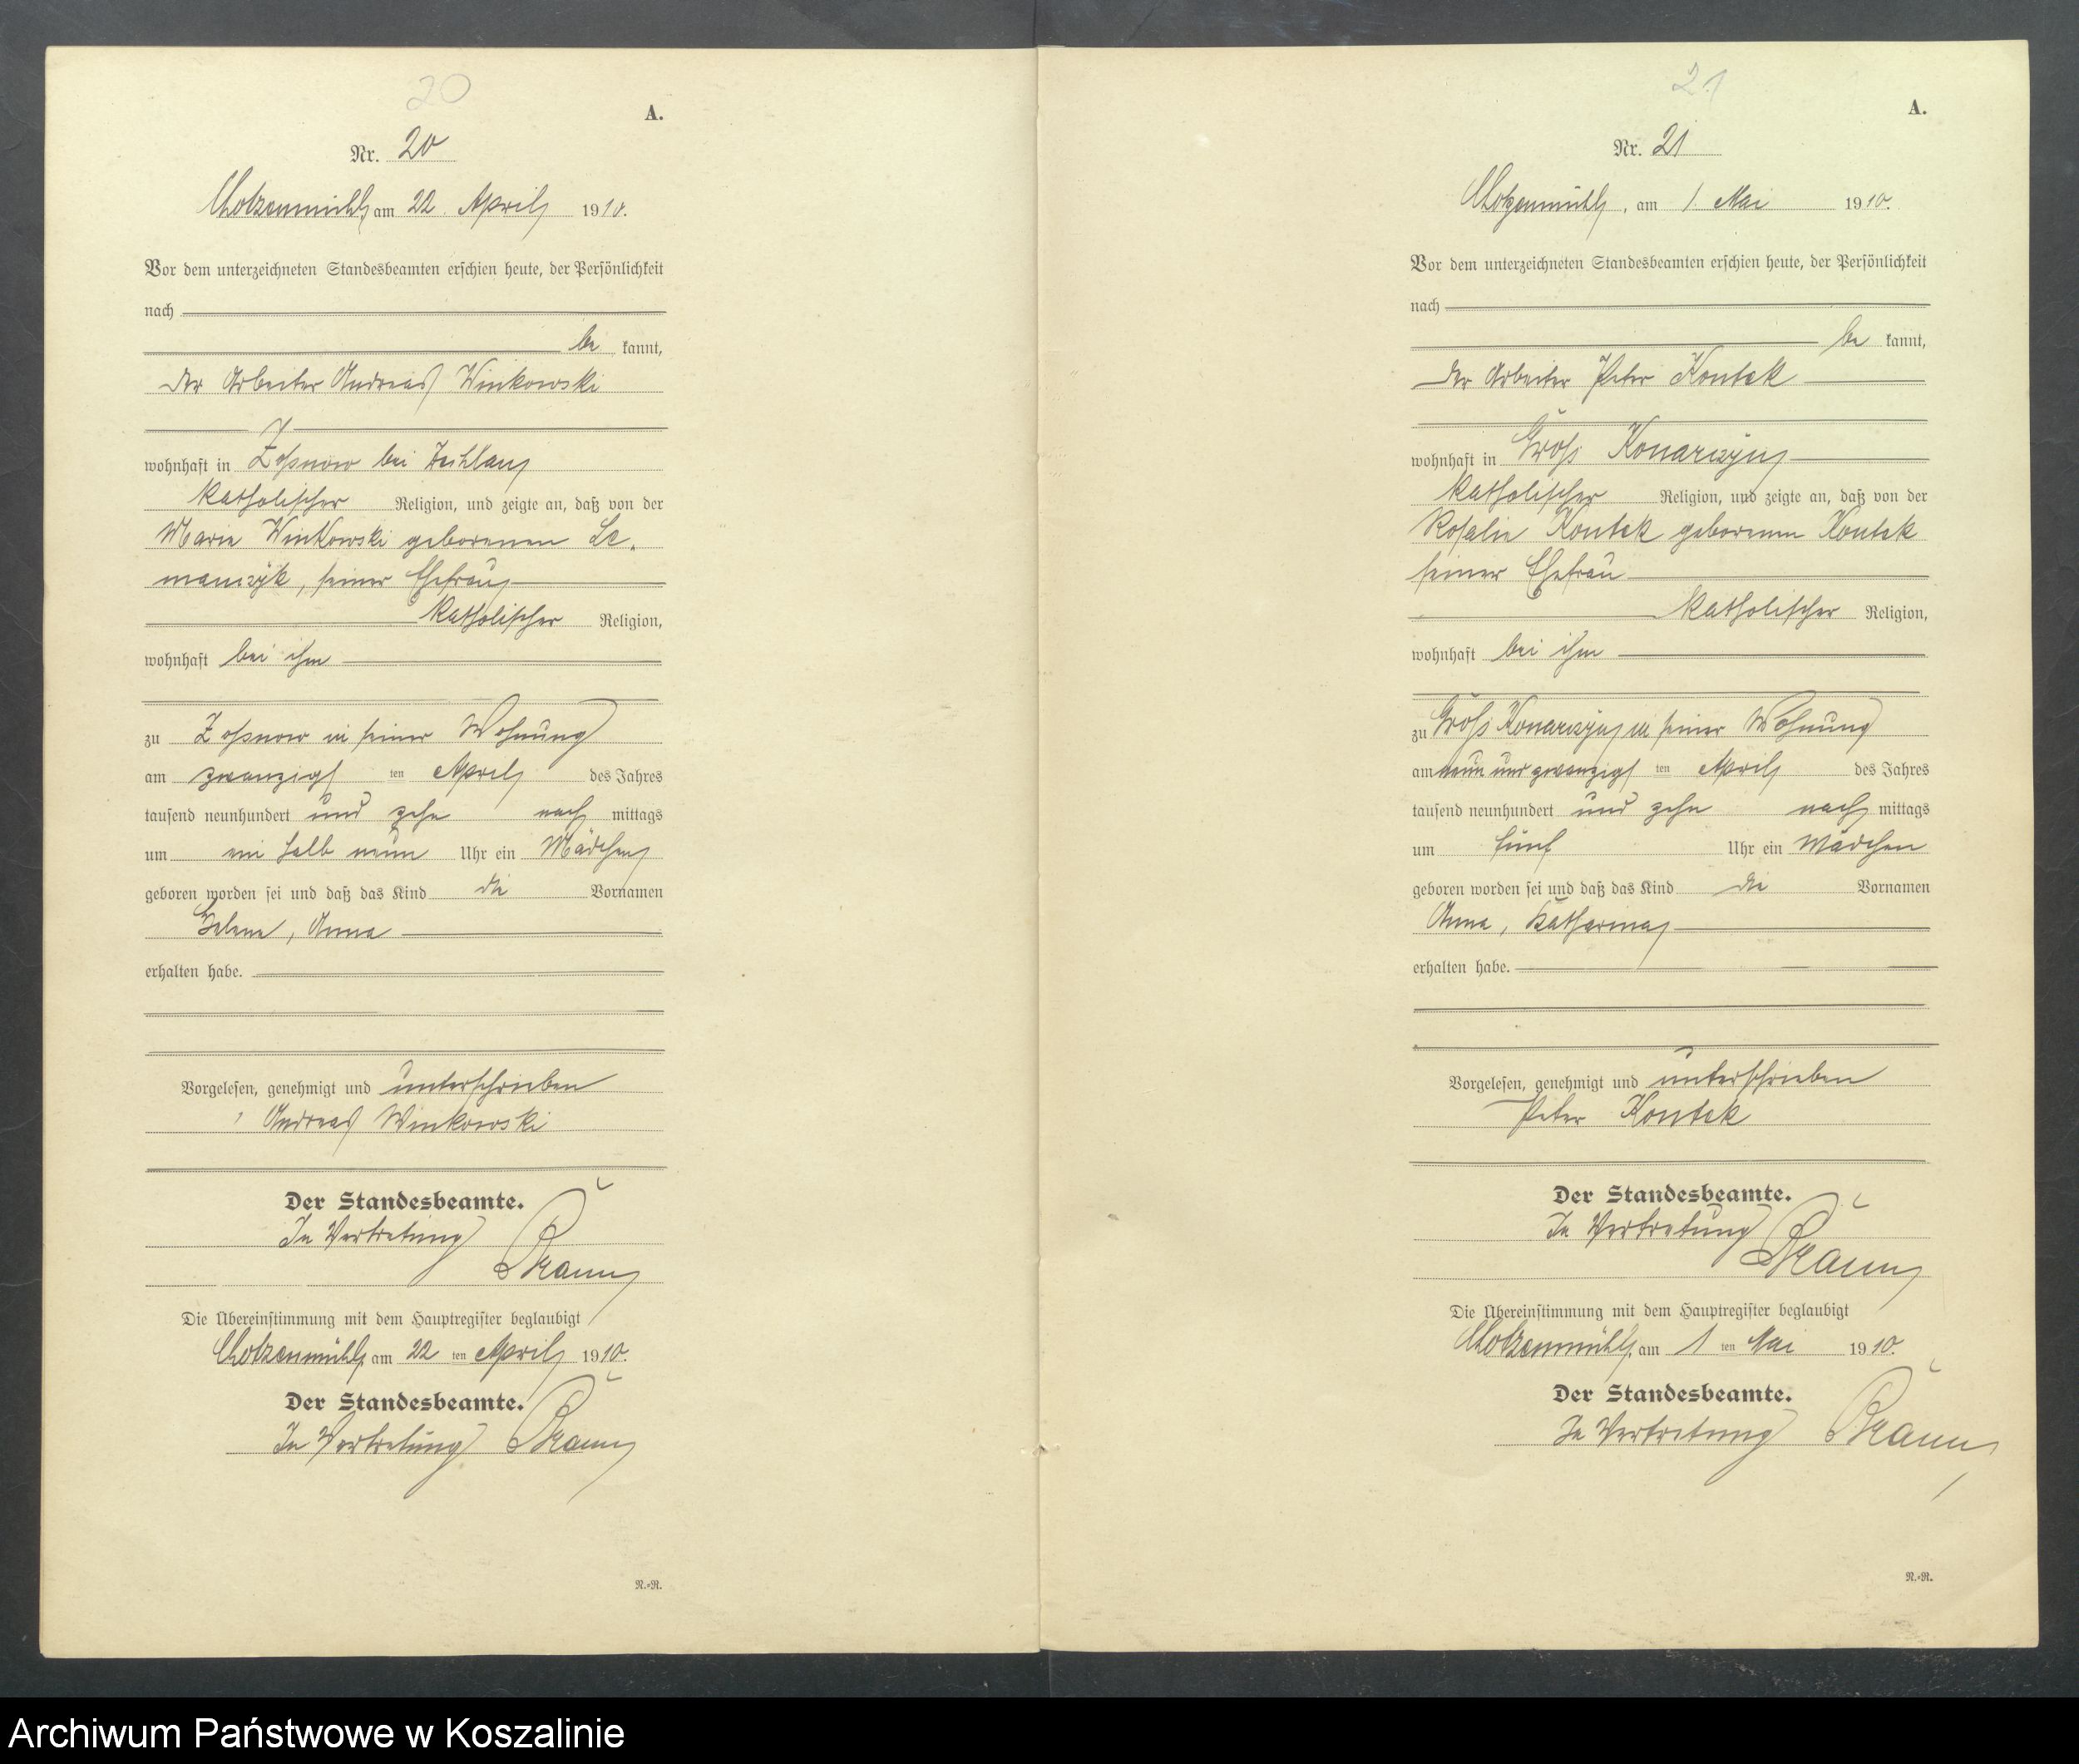 20
A.
Nr. 20
Chotzenmühl am 22. April 1910.
Vor dem unterzeichneten Standesbeamten erschien heute, der Persönlichkeit
nach
be kannt,
der Arbeiter Andreas Winkowski
wohnhaft in Zossnow bei
katholischer Religion, und zeigte an, daß von der
Marie Winkowski geborenen Le,
manczyk, seiner Ehefrau
katholischer Religion,
wohnhaft bei ihm
zu Zossnow in seiner Wohnung
am zwanzigs ten April des Jahres
tausend neunhundert und zehn nach mittags
um ein halb neun Uhr ein Mädchen
geboren worden sei und daß das Kind die Vornamen
Helene, Anna
erhalten habe.
Vorgelesen, genehmigt und unterschrieben
Andreas Winkowski
Der Standesbeamte.
In Vertretung
Die Übereinstimmung mit dem Hauptregister beglaubigt
Chotzenmühl, am 22 ten April 1910.
Der Standesbeamte.
In Vertretung
N.-R.
21
A.
Nr. 21
Chotzenmühl, am 1. Mai 1910.
Vor dem unterzeichneten Standesbeamten erschien heute, der Persönlichkeit
nach
be kannt,
der Arbeiter Peter Kontek
wohnhaft in Gross Konarczyn
katholischer Religion, und zeigte an, daß von der
Rosalie Kontek geborenen Kontek
seiner Ehefrau
katholischer Religion,
wohnhaft bei ihm
zu Gross Konarczyn in seiner Wohnung
am neun und zwanzigs ten April des Jahres
tausend neunhundert und zehn nach mittags
um fünf Uhr ein Mädchen
geboren worden sei und daß das Kind die Vornamen
Anna, Katharina
erhalten habe.
Vorgelesen, genehmigt und unterschrieben
Peter Kontek
Der Standesbeamte.
In Vertretung
Die Übereinstimmung mit dem Hauptregister beglaubigt
Chotzenmühl, am 1 ten Mai 1910.
Der Standesbeamte.
In Vertretung
N.-R.
Archiwum Państwowe w Koszalinie